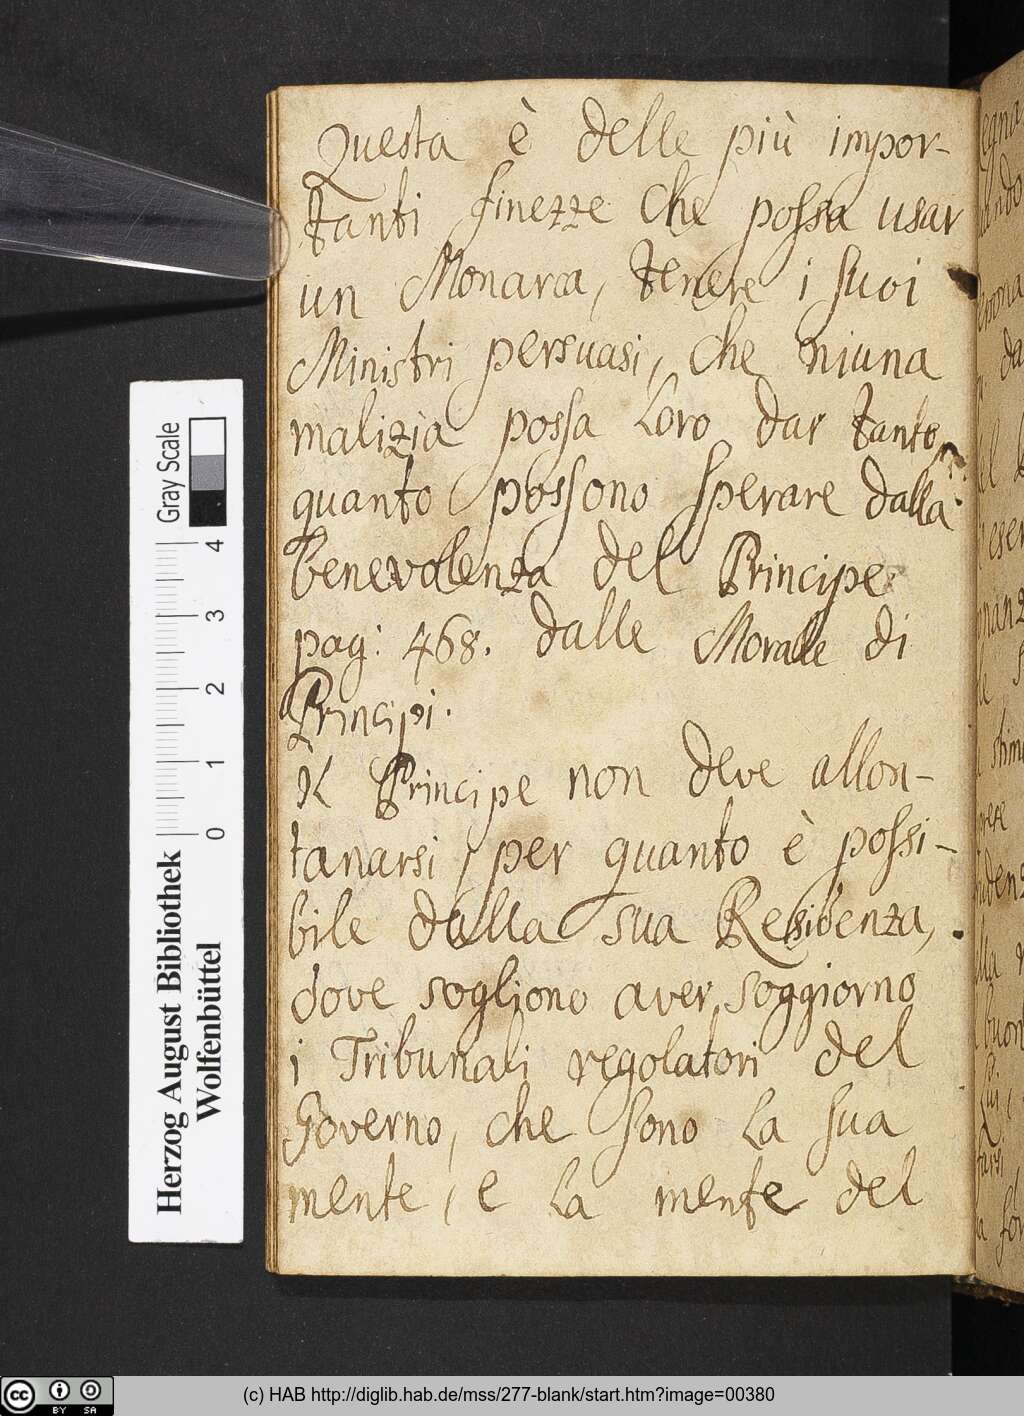 Questa è delle più impor-
tanti finezze che possa usar
un Monarca, tenere i suoi
Ministri persuasi, che niuna
malizia possa loro dar tanto,
quanto possono sperare dalla
benevolenza del Principe
pag: 468. dalle Morale di
Principi.
Il Principe non deve allon-
tanarsi, per quanto è possi-
bile dalla sua Residenza,
dove sogliono aver soggiorno
i Tribunali regolatori del
Governo, che sono la sua
mente, e la mente del
Gray Scale
4
3
2
1
0
Herzog August Bibliothek
Wolfenbüttel
cc BY SA
(c) HAB http://diglib.hab.de/mss/277-blank/start.htm?image=00380